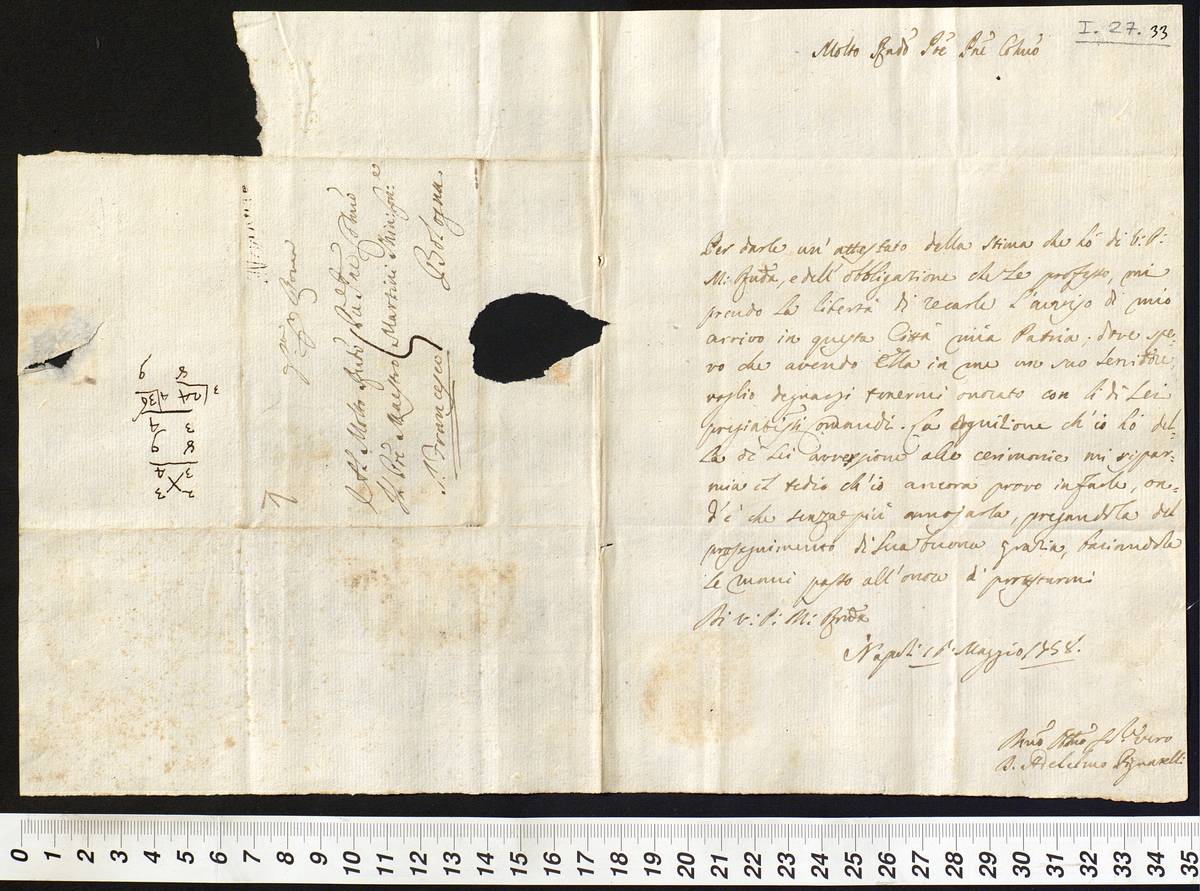 I. 27. 33
Molto Rndo Pre Pne Colmo
Per darle un' attestato della stima che hò di V: P:
M: Rnda, e dell' obbligazione che Le professo, mi
prendo la libertà di recarle l'avviso di mio
arrivo in questa Città mia Patria, dove spe-
ro che avendo Ella in me un suo servitore,
voglia degnarsi tenermi onorato con li di Lei
pregiatissi comandi. La cognizione ch'io hò del-
la di Lei avversione alle cerimonie mi rispar-
mia il tedio ch'io ancora provo in farle, on-
d'è che senza più annojarla, pregandola del
proseguimento di sua buona grazia, baciandole
le mani passo all'onore di protestarmi
Di V: P: M: Rnda
Napoli 16 Maggio 1758.
Servo vero
D. Adelelmo Pignatelli
Al Molto Rndo Pre Pne Colmo
Il Pre Maestro Martini Min:
S. Francesco
Bologna.
7